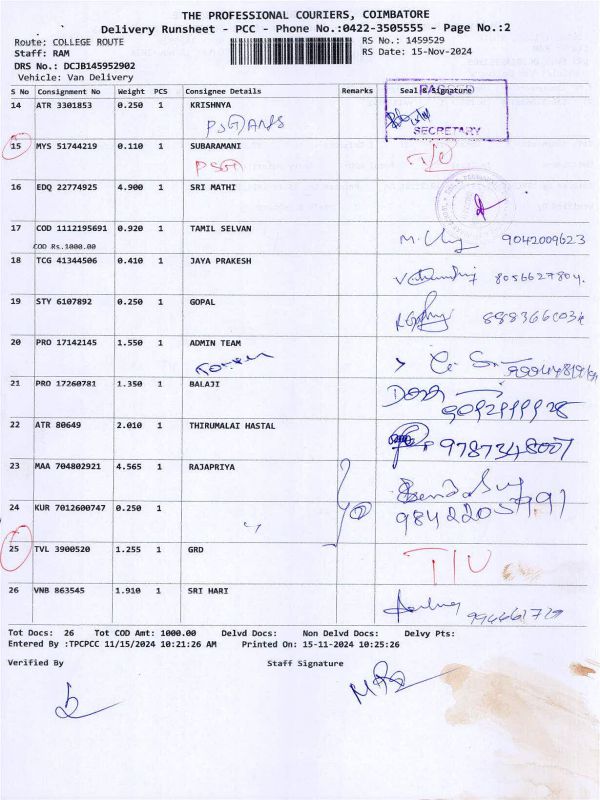 THE PROFESSIONAL COURIERS, COIMBATORE
Delivery Runsheet - PCC - Phone No.:0422-3505555 - Page No.:2
Route: COLLEGE ROUTE RS No.: 1459529
Staff: RAM RS Date: 15-Nov-2024
DRS No.: DCJB145952902
Vehicle: Van Delivery
S No Consignment No Weight PCS Consignee Details Remarks Seal & Signature
14 ATR 3301853 0.250 1 KRISHNYA
SECRETARY
15 MYS 51744219 0.110 1 SUBARAMANI
PSG
16 EDQ 22774925 4.900 1 SRI MATHI
17 COD 1112195691 0.920 1 TAMIL SELVAN
COD Rs.1000.00 9042009623
18 TCG 41344506 0.410 1 JAYA PRAKESH
8056627804.
19 STY 6107892 0.250 1 GOPAL
8883666034
20 PRO 17142145 1.550 1 ADMIN TEAM
21 PRO 17260781 1.350 1 BALAJI
22 ATR 80649 2.010 1 THIRUMALAI HASTAL
9787348007
23 MAA 704802921 4.565 1 RAJAPRIYA
24 KUR 7012600747 0.250 1
25 TVL 3900520 1.255 1 GRD
26 VNB 863545 1.910 1 SRI HARI
Tot Docs: 26 Tot COD Amt: 1000.00 Delvd Docs: Non Delvd Docs: Delvy Pts:
Entered By :TPCPCC 11/15/2024 10:21:26 AM Printed On: 15-11-2024 10:25:26
Verified By Staff Signature